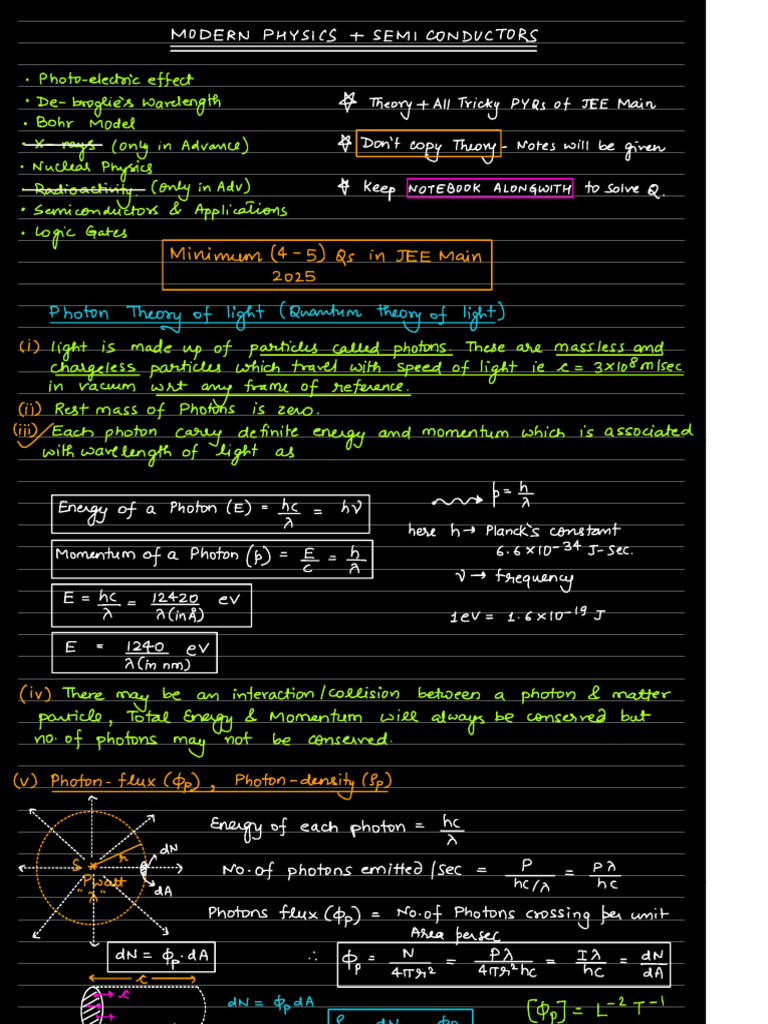 MODERN PHYSICS + SEMI CONDUCTORS
• Photo-electric effect
• De-broglie's wavelength
☆ Theory + All Tricky PYQs of JEE Main
• Bohr Model
• X-rays (only in Advance)
☆ Don't copy Theory - Notes will be given
• Nuclear Physics
• Radioactivity (only in Adv)
☆ Keep NOTEBOOK ALONGWITH to solve Q.
• Semiconductors & Applications
• Logic Gates
Minimum (4-5) Qs in JEE Main
2025
Photon Theory of light (Quantum theory of light)
(i) light is made up of particles called photons. These are massless and
chargeless particles which travel with speed of light ie c = 3×10⁸ m/sec
in vacuum wrt any frame of reference.
(ii) Rest mass of Photons is zero.
(iii) Each photon carry definite energy and momentum which is associated
with wavelength of light as
Energy of a Photon (E) = hc/λ = hν
p = h/λ
here h → Planck's constant
6.6×10⁻³⁴ J-sec.
Momentum of a Photon (p) = E/c = h/λ
ν → frequency
E = hc/λ = 12420/λ(in Å) eV
1eV = 1.6×10⁻¹⁹ J
E = 1240/λ(in nm) eV
(iv) There may be an interaction/collision between a photon & matter
particle, Total Energy & Momentum will always be conserved but
no. of photons may not be conserved.
(v) Photon-flux (ϕp), Photon-density (ρp)
Energy of each photon = hc/λ
S r dN
P watt
"λ" dA
No. of photons emitted/sec = P/(hc/λ) = Pλ/hc
Photons flux (ϕp) = No. of Photons crossing per unit
Area per sec
dN = ϕp.dA
∴ ϕp = N/4πr² = Pλ/4πr²hc = Iλ/hc = dN/dA
c
c
dN = ϕp dA
[ϕp] = L⁻² T⁻¹